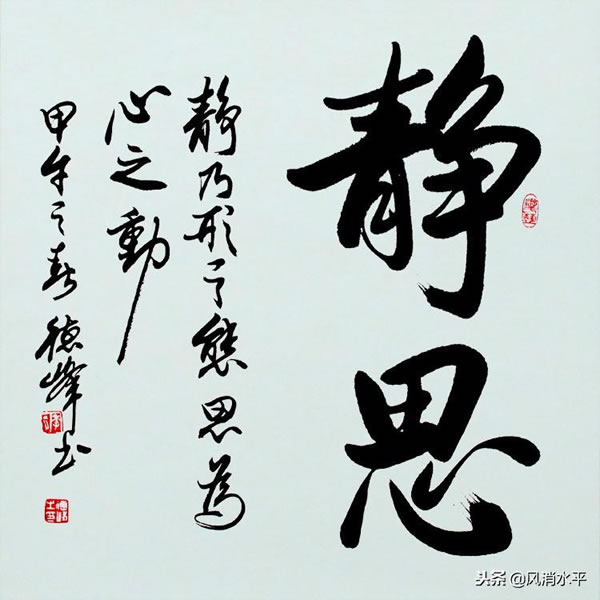 静思
静乃形之態思為
心之動
甲午之春德峰书
头条@风消水平